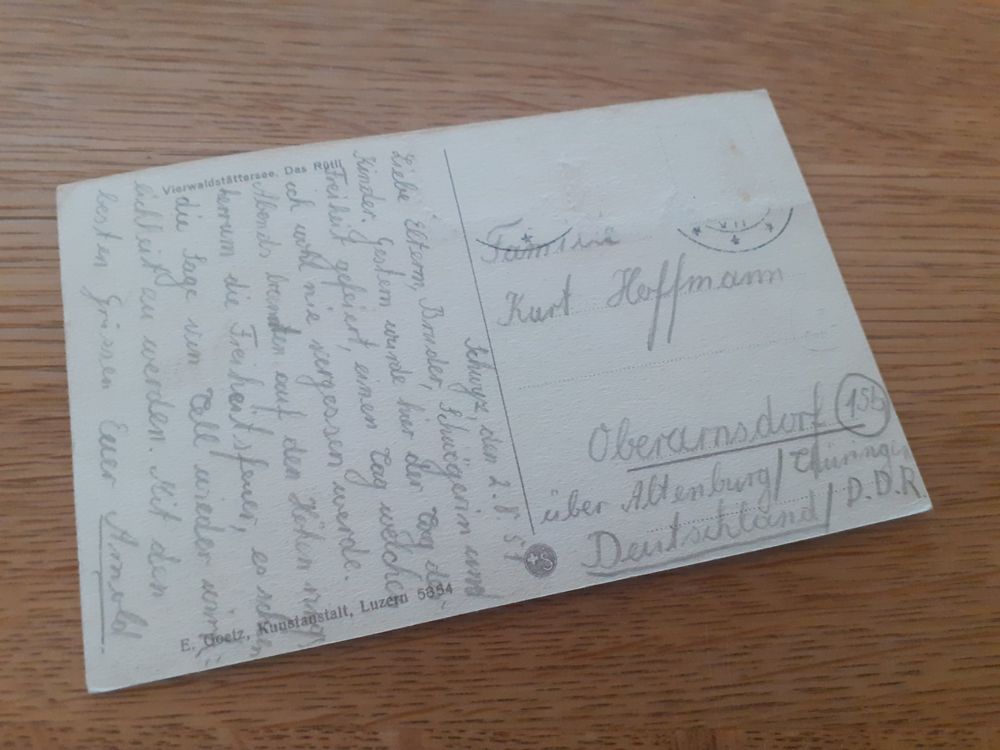 Vierwaldstättersee. Das Rütli
Schwyz, den 2. 8. 51
Liebe Eltern, Bruder, Schwägerin und
Kinder. Gestern wurde hier der Tag der
Freiheit gefeiert, einen Tag welchen
ich wohl nie vergessen werde.
Abends brennten auf den Höhen rings
herum die Freiheitsfeuer, es schien
die Sage von Tell wieder wirk-
lichkeit zu werden. Mit den
besten Grüssen Euer Arnold
E. Goetz, Kunstanstalt, Luzern 5354
Familie
Kurt Hoffmann
Oberarnsdorf 15b
über Altenburg/Thüringen
Deutschland/D.D.R